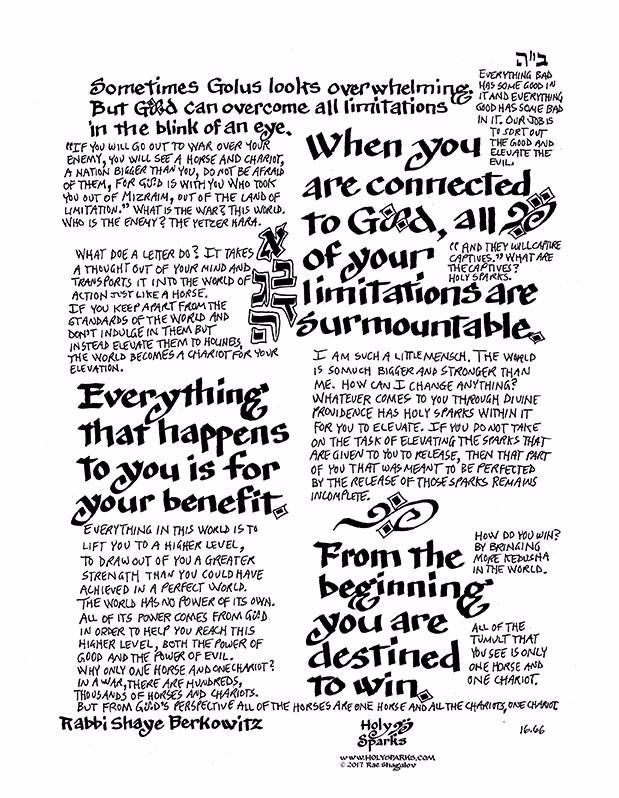 ב״ה
Sometimes Golus looks overwhelming.
But G@d can overcome all limitations
in the blink of an eye.
EVERYTHING BAD
HAS SOME GOOD IN
IT AND EVERYTHING
GOOD HAS SOME BAD
IN IT. OUR JOB IS
TO SORT OUT
THE GOOD AND
ELEVATE THE
EVIL.
"IF YOU WILL GO OUT TO WAR OVER YOUR
ENEMY, YOU WILL SEE A HORSE AND CHARIOT,
A NATION BIGGER THAN YOU, DO NOT BE AFRAID
OF THEM, FOR G@D IS WITH YOU WHO TOOK
YOU OUT OF MIZRAIM, OUT OF THE LAND OF
LIMITATION." WHAT IS THE WAR? THIS WORLD.
WHO IS THE ENEMY? THE YETZER HARA.
When you
are connected
to G@d, all
of your
limitations are
surmountable.
" AND THEY WILL CAPTURE
CAPTIVES." WHAT ARE
THE CAPTIVES?
HOLY SPARKS.
WHAT DOE A LETTER DO? IT TAKES
A THOUGHT OUT OF YOUR MIND AND
TRANSPORTS IT INTO THE WORLD OF
ACTION JUST LIKE A HORSE.
IF YOU KEEP APART FROM THE
STANDARDS OF THE WORLD AND
DON'T INDULGE IN THEM BUT
INSTEAD ELEVATE THEM TO HOLINES,
THE WORLD BECOMES A CHARIOT FOR YOUR
ELEVATION.
I AM SUCH A LITTLE MENSCH. THE WORLD
IS SO MUCH BIGGER AND STRONGER THAN
ME. HOW CAN I CHANGE ANYTHING?
WHATEVER COMES TO YOU THROUGH DIVINE
PROVIDENCE HAS HOLY SPARKS WITHIN IT
FOR YOU TO ELEVATE. IF YOU DO NOT TAKE
ON THE TASK OF ELEVATING THE SPARKS THAT
ARE GIVEN TO YOU TO RELEASE, THEN THAT PART
OF YOU THAT WAS MEANT TO BE PERFECTED
BY THE RELEASE OF THOSE SPARKS REMAINS
INCOMPLETE.
Everything
that happens
to you is for
your benefit.
EVERYTHING IN THIS WORLD IS TO
LIFT YOU TO A HIGHER LEVEL,
TO DRAW OUT OF YOU A GREATER
STRENGTH THAN YOU COULD HAVE
ACHIEVED IN A PERFECT WORLD.
THE WORLD HAS NO POWER OF ITS OWN.
ALL OF ITS POWER COMES FROM G@D
IN ORDER TO HELP YOU REACH THIS
HIGHER LEVEL, BOTH THE POWER OF
GOOD AND THE POWER OF EVIL.
WHY ONLY ONE HORSE AND ONE CHARIOT?
IN A WAR, THERE ARE HUNDREDS,
THOUSANDS OF HORSES AND CHARIOTS.
BUT FROM G@D'S PERSPECTIVE ALL OF THE HORSES ARE ONE HORSE AND ALL THE CHARIOTS, ONE CHARIOT
From the
beginning
you are
destined
to win.
HOW DO YOU WIN?
BY BRINGING
MORE KEDUSHA
IN THE WORLD.
ALL OF THE
TUMULT THAT
YOU SEE IS ONLY
ONE HORSE AND
ONE CHARIOT.
Rabbi Shaye Berkowitz
Holy
Sparks
WWW.HOLYSPARKS.COM
© 2017 Rae Shagalov
16.66